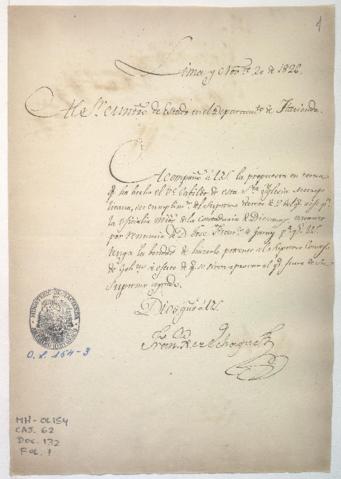 1
Lima y Nov.e 20 de 1826.
M. S. Ministro de Estado en el Departam.to de Hacienda
Acompaño á US. la propuesta en terna
q.e ha hecho el V.e Cabildo de esta S.ta Yglesia Metropo
litana, en cumplim.to del Supremo decreto de
la oficialia de la Contaduria de Diezmos, vacante
por renuncia de D. Jose p.a q.e US.
tenga la bondad de hacerlo presente al Supremo Consejo
de Gob.no á efecto de q.e se sirva aprovar el q.e fuere de su
Supremo agrado.
Dios gue á US.
Fran.co Echague
MINISTERIO DE HACIENDA
O.L. 154-3
MH-OL154
CAJ. 62
DOC. 132
FOL. 1